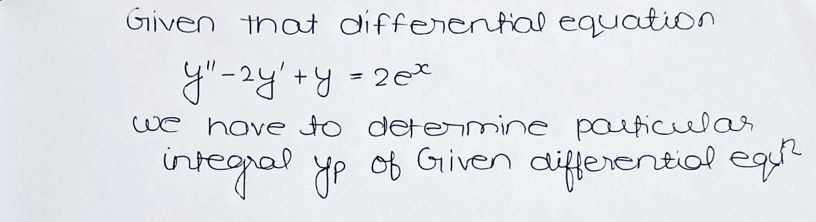 Given that differential equation
y" - 2y' + y = 2eˣ
we have to determine particular
integral yp of Given differential equⁿ